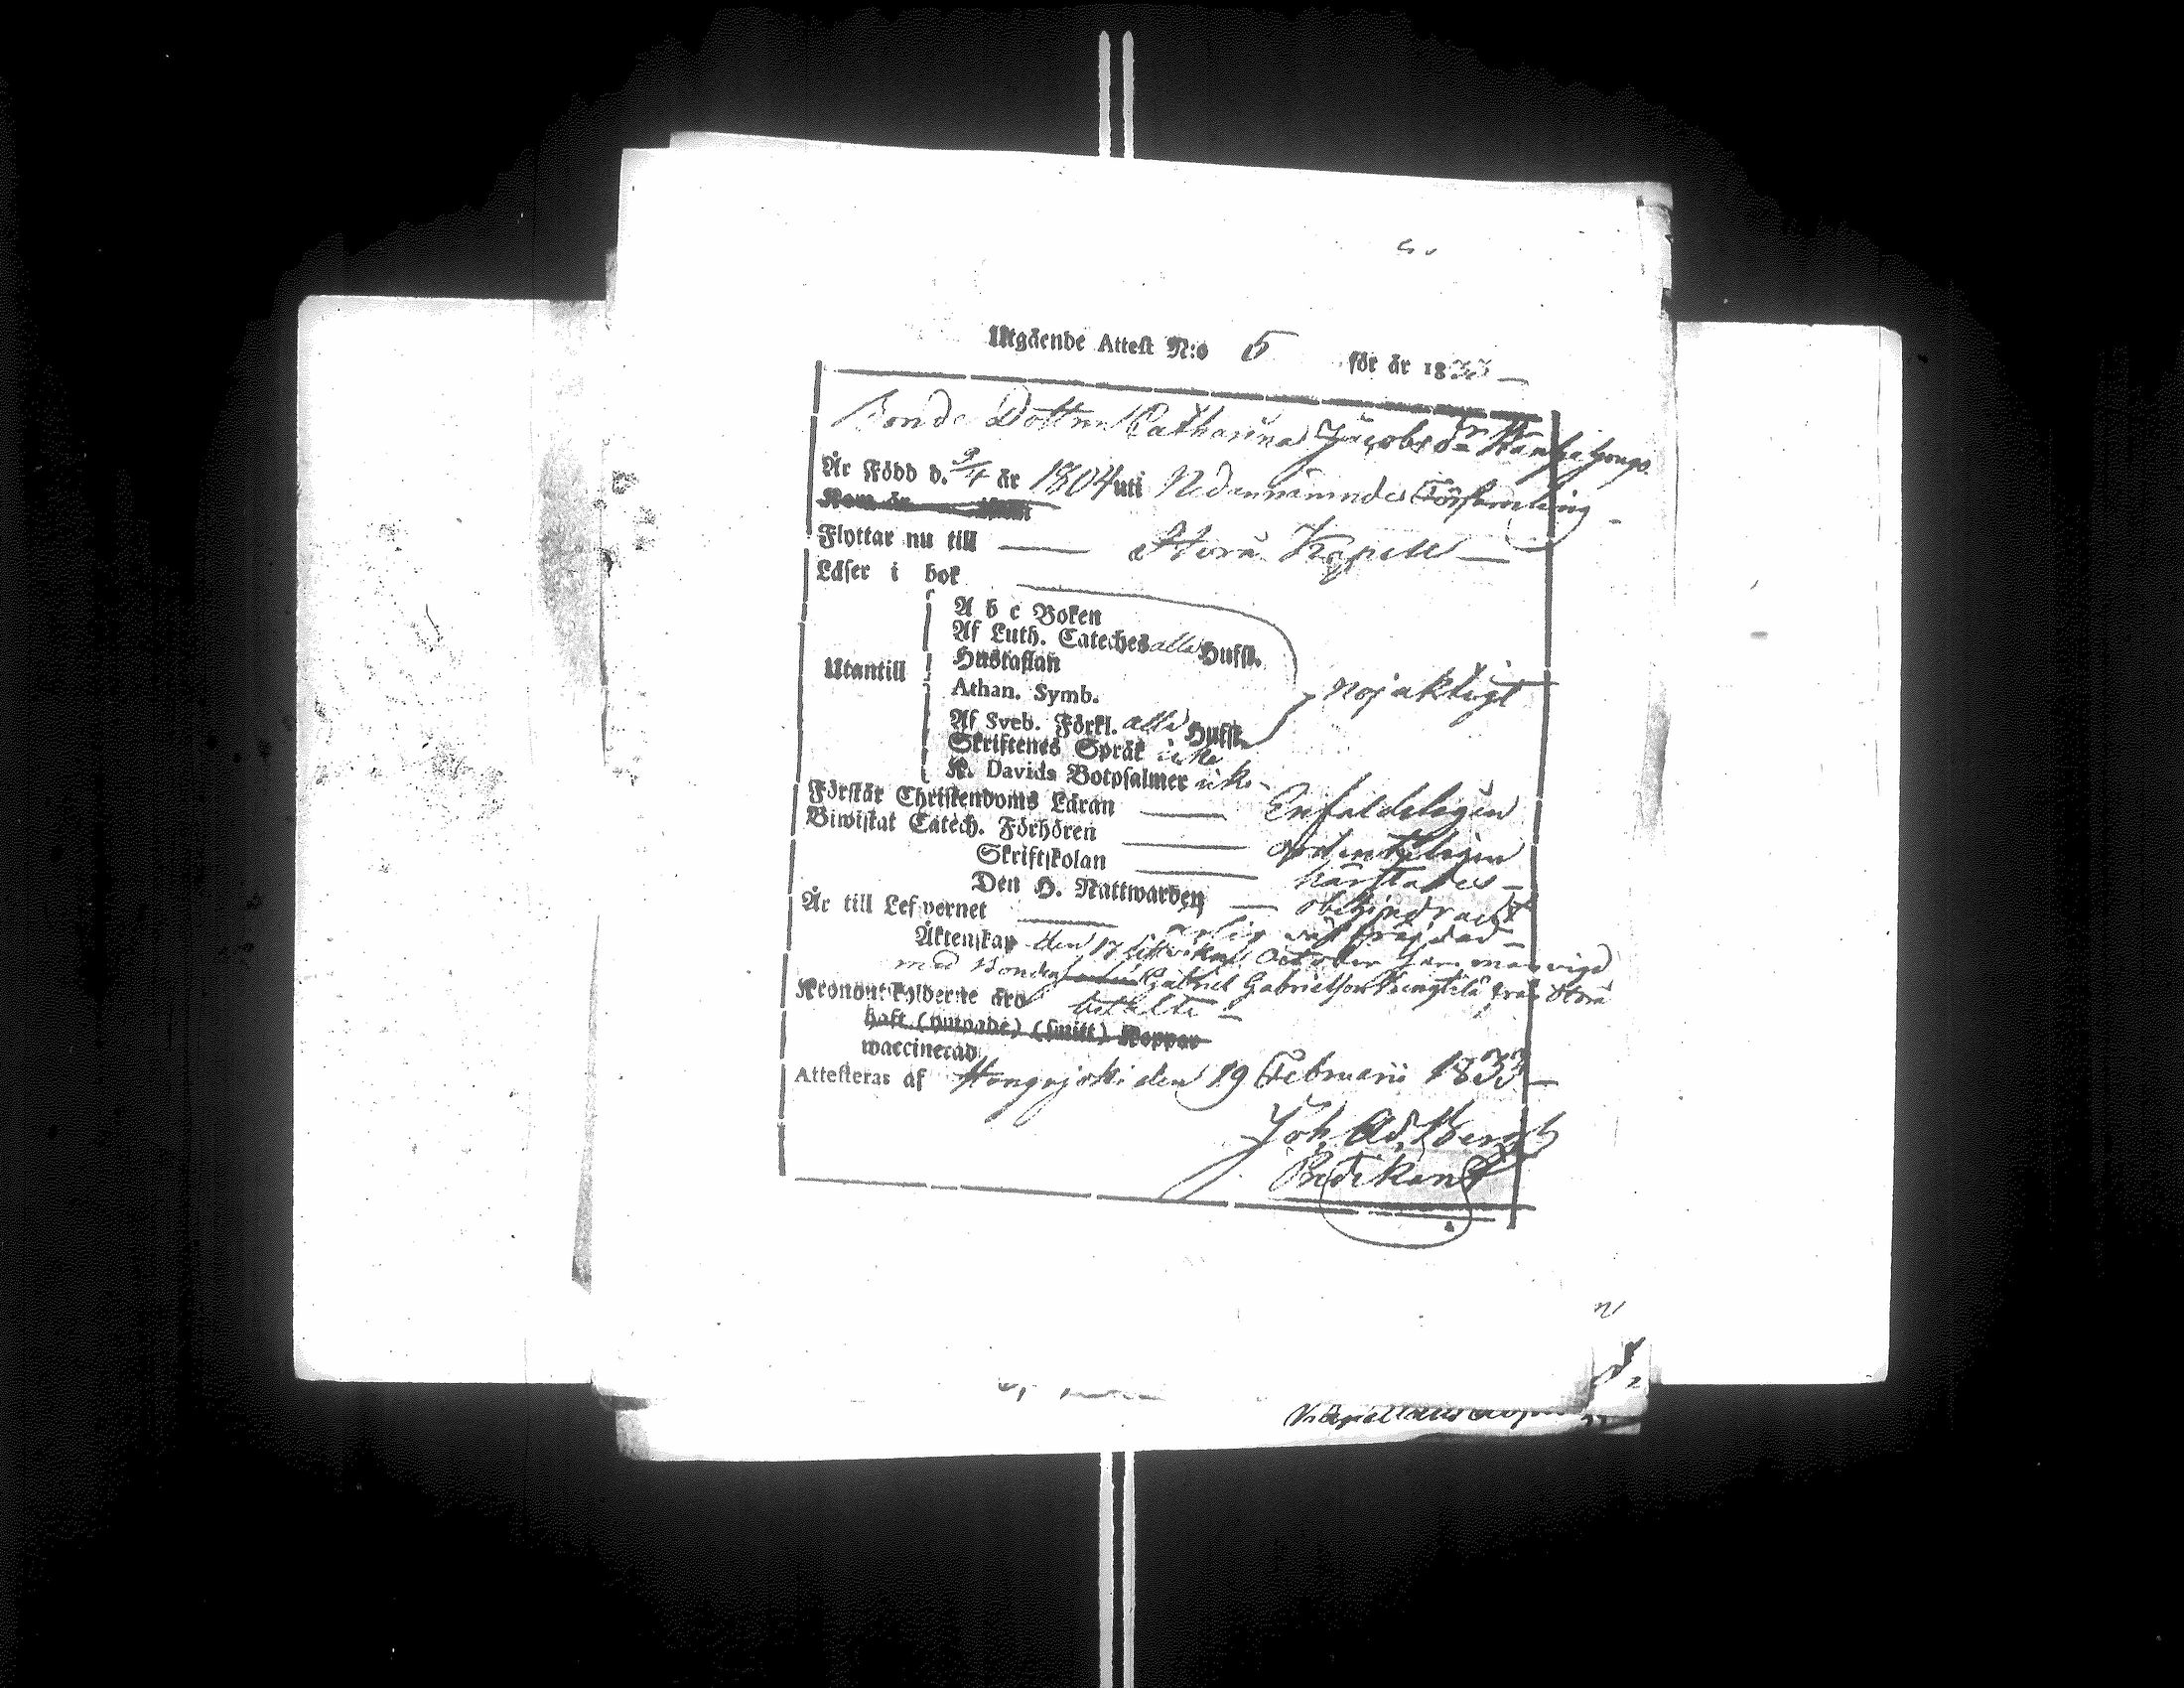 Utgående Attest N:o 5 för år 1833
Bonde Dottren Catharina Jacobsdr
År Född d. 9/4 år 1804 uti Nedannämnde Församling
Flyttar nu till Storå Kapell
Läser i bok
A b c Boken
Af Luth. Cateches alla Hufst.
Hustaflan
Utantill
Athan. Symb.
nöjaktigt
Af Sveb. Förkl. alla Hufst.
Skriftenes Språk icke
K. Davids Botpsalmer icke
Förstår Christendoms Läran Enfaldeligen
Biwistat Catech. Förhören ordenteligen
Skriftskolan härstädes
Den H. Nattwarden obehindradt
År till Lefvernet ärlig väl frägdad
Äktenskap den 17 October sammanvigd
med Bonden Gabriel Gabrielsson från Storå
Kronoutskylderne äro betalte
haft (ympade) (smitt) Koppor
waccinerad
Attesteras af Hongojoki den 19 Februarii 1833
Joh. Ad. Bergh
Predikant